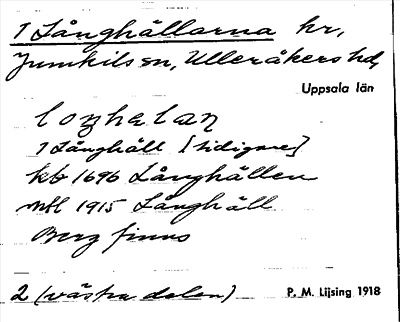 1 Långhällarna hr,
Jumkils sn, Ulleråkers hd,
Uppsala län
loŋhelaɳ
1 Långhäll [tidigare]
kb 1696 Långhällen
mtl 1915 Långhäll
Berg finns
2 (västra delen)
P. M. Lijsing 1918